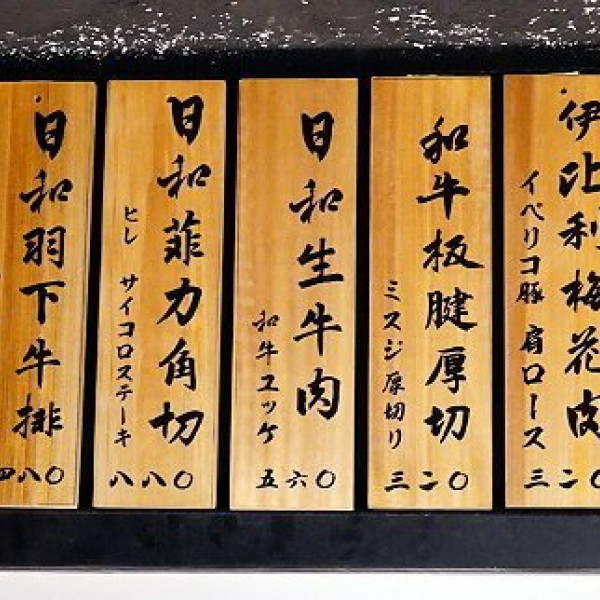 伊比利梅花肉
イベリコ豚 肩ロース
三二〇
和牛板腱厚切
ミスジ厚切り
三二〇
日和生牛肉
和牛ユッケ
五六〇
日和菲力角切
ヒレ サイコロステーキ
八八〇
日和羽下牛排
四八〇